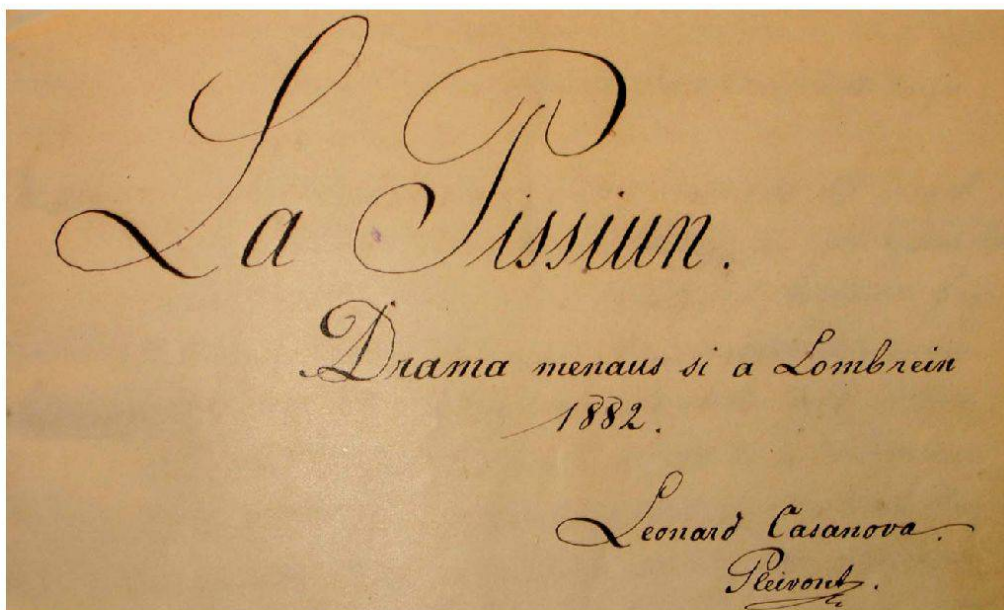 La Pissiun.
Drama menaus si a Lombrein
1882.
Leonard Casanova.
Pleivont.